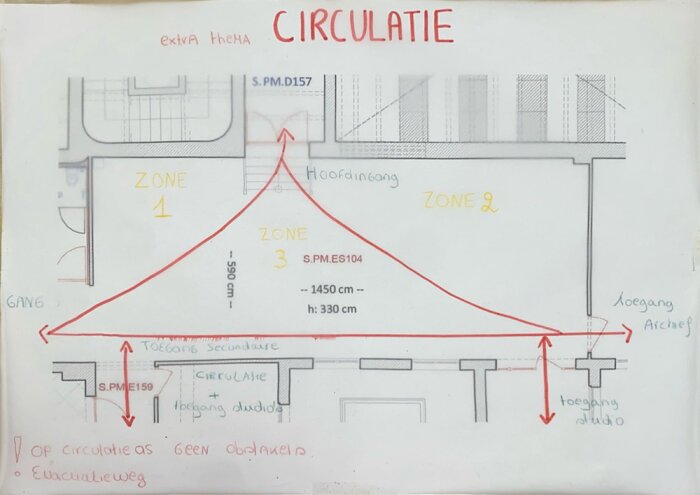 extra thema CIRCULATIE
S.PM.D157
Hoofdingang
ZONE
1
ZONE 2
ZONE
3
S.PM.ES104
-- 590 cm --
-- 1450 cm --
h: 330 cm
GANG
Toegang
Archief
TOEGANG Secundaire
CIRCULATIE
+
toegang studio's
S.PM.E159
toegang
studio
! OP circulatie as GEEN obstakels.
• Evacuatieweg